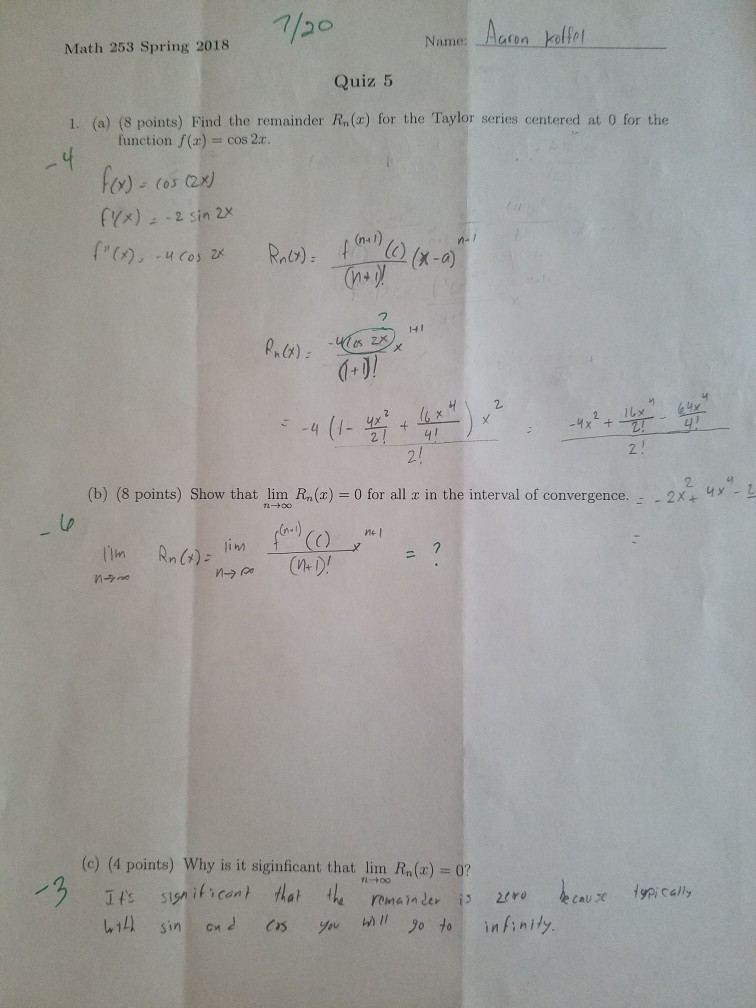 7/20
Math 253 Spring 2018 Name: Aaron Koffel
Quiz 5
1. (a) (8 points) Find the remainder Rₙ(x) for the Taylor series centered at 0 for the
function f(x) = cos 2x.
-4
f(x) = cos (2x)
f'(x) = -2 sin 2x
f''(x) = -4 cos 2x Rₙ(x) = f⁽ⁿ⁺¹⁾(c)/(n+1)! (x-a)ⁿ⁺¹
?
Rₙ(x) = -4 cos 2x/(1+1)! x¹⁺¹
= -4 (1 - 4x²/2! + 16x⁴/4!) x² / 2! = (-4x² + 16x⁴/2! - 64x⁴/4!) / 2!
(b) (8 points) Show that lim n→∞ Rₙ(x) = 0 for all x in the interval of convergence. = -2x² + 4x⁴ - 2
-6
=
lim n→∞ Rₙ(x) = lim n→∞ f⁽ⁿ⁺¹⁾(c)/(n+1)! xⁿ⁺¹ = ?
(c) (4 points) Why is it siginficant that lim n→∞ Rₙ(x) = 0?
-3
It's significant that the remainder is zero because typically
with sin and cos you will go to infinity.